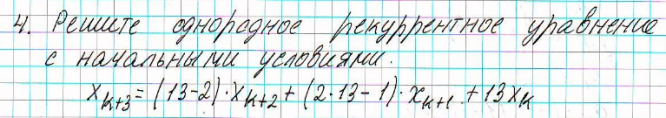 4. Решите однородное рекуррентное уравнение
с начальными условиями.
x_{k+3} = (13-2)·x_{k+2} + (2·13-1)·x_{k+1} + 13x_k